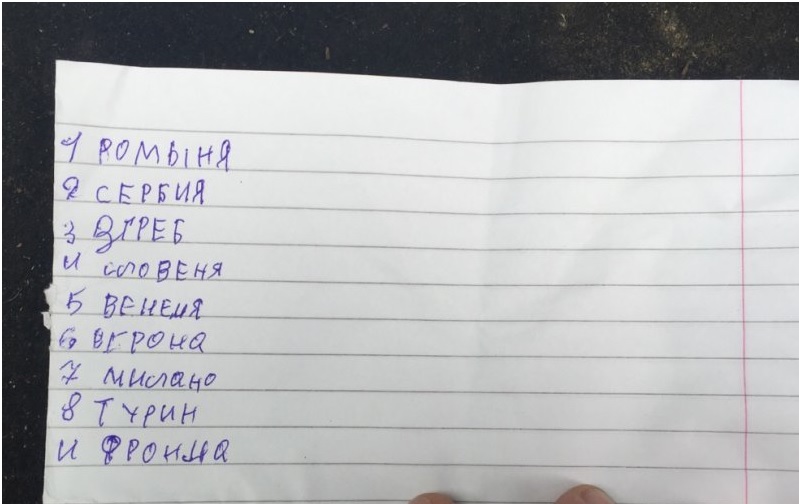 1 РОМЫНЯ
2 СЕРБИЯ
3 ЗГРЕБ
4 СЛОВЕНЯ
5 ВЕНЕЦЯ
6 ВЕРОНА
7 МИЛАНО
8 ТУРИН
4 ФРОНЦА